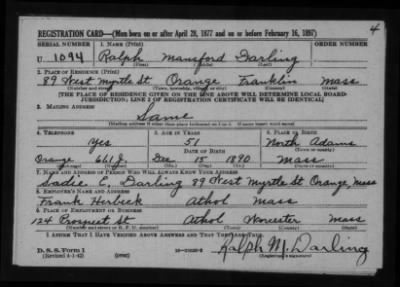 4
REGISTRATION CARD—(Men born on or after April 28, 1877 and on or before February 16, 1897)
SERIAL NUMBER 1. NAME (Print) ORDER NUMBER
U 1094 Ralph Mansford Darling
(First) (Middle) (Last)
2. PLACE OF RESIDENCE (Print)
89 West Myrtle St Orange Franklin Mass
(Number and street) (Town, township, village, or city) (County) (State)
[THE PLACE OF RESIDENCE GIVEN ON THE LINE ABOVE WILL DETERMINE LOCAL BOARD
JURISDICTION; LINE 2 OF REGISTRATION CERTIFICATE WILL BE IDENTICAL]
3. MAILING ADDRESS
Same
[Mailing address if other than place indicated on line 2. If same insert word same]
4. TELEPHONE 5. AGE IN YEARS 6. PLACE OF BIRTH
Yes 51 North Adams
DATE OF BIRTH (Town or county)
Orange 661 J. Dec 15 1890 Mass
(Exchange) (Number) (Mo.) (Day) (Yr.) (State or country)
7. NAME AND ADDRESS OF PERSON WHO WILL ALWAYS KNOW YOUR ADDRESS
Sadie E. Darling 89 West Myrtle St Orange, Mass
8. EMPLOYER'S NAME AND ADDRESS
Frank Herbeck Athol Mass
9. PLACE OF EMPLOYMENT OR BUSINESS
124 Prospect St Athol Worcester Mass
(Number and street or R. F. D. number) (Town) (County) (State)
I AFFIRM THAT I HAVE VERIFIED ABOVE ANSWERS AND THAT THEY ARE TRUE.
D. S. S. Form 1
(Revised 4-1-42) (over) Ralph M. Darling
(Registrant's signature)